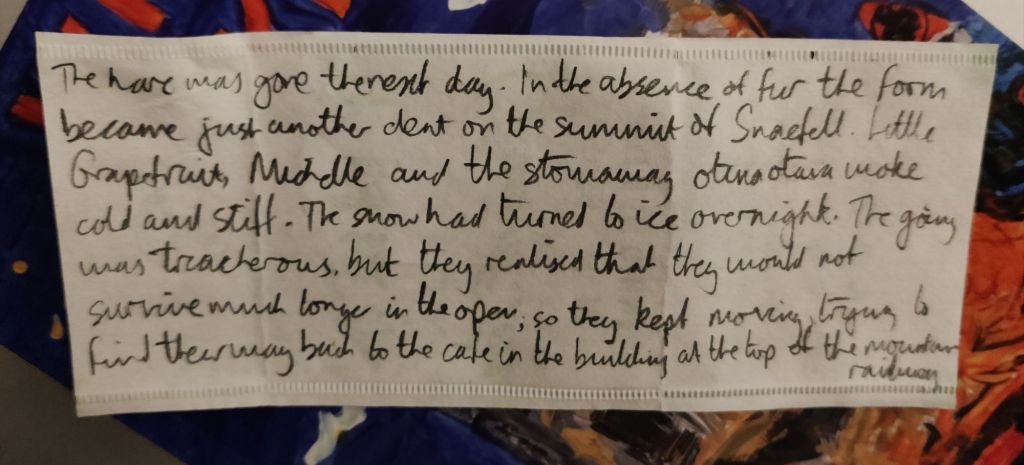 The hare was gone the next day. In the absence of fur the form
became just another dent on the summit of Snaefell. Little
Grapefruit, Michelle and the stowaway woke
cold and stiff. The snow had turned to ice overnight. The going
was treacherous, but they realised that they would not
survive much longer in the open, so they kept moving, trying to
find their way back to the cafe in the building at the top of the mountain
railway